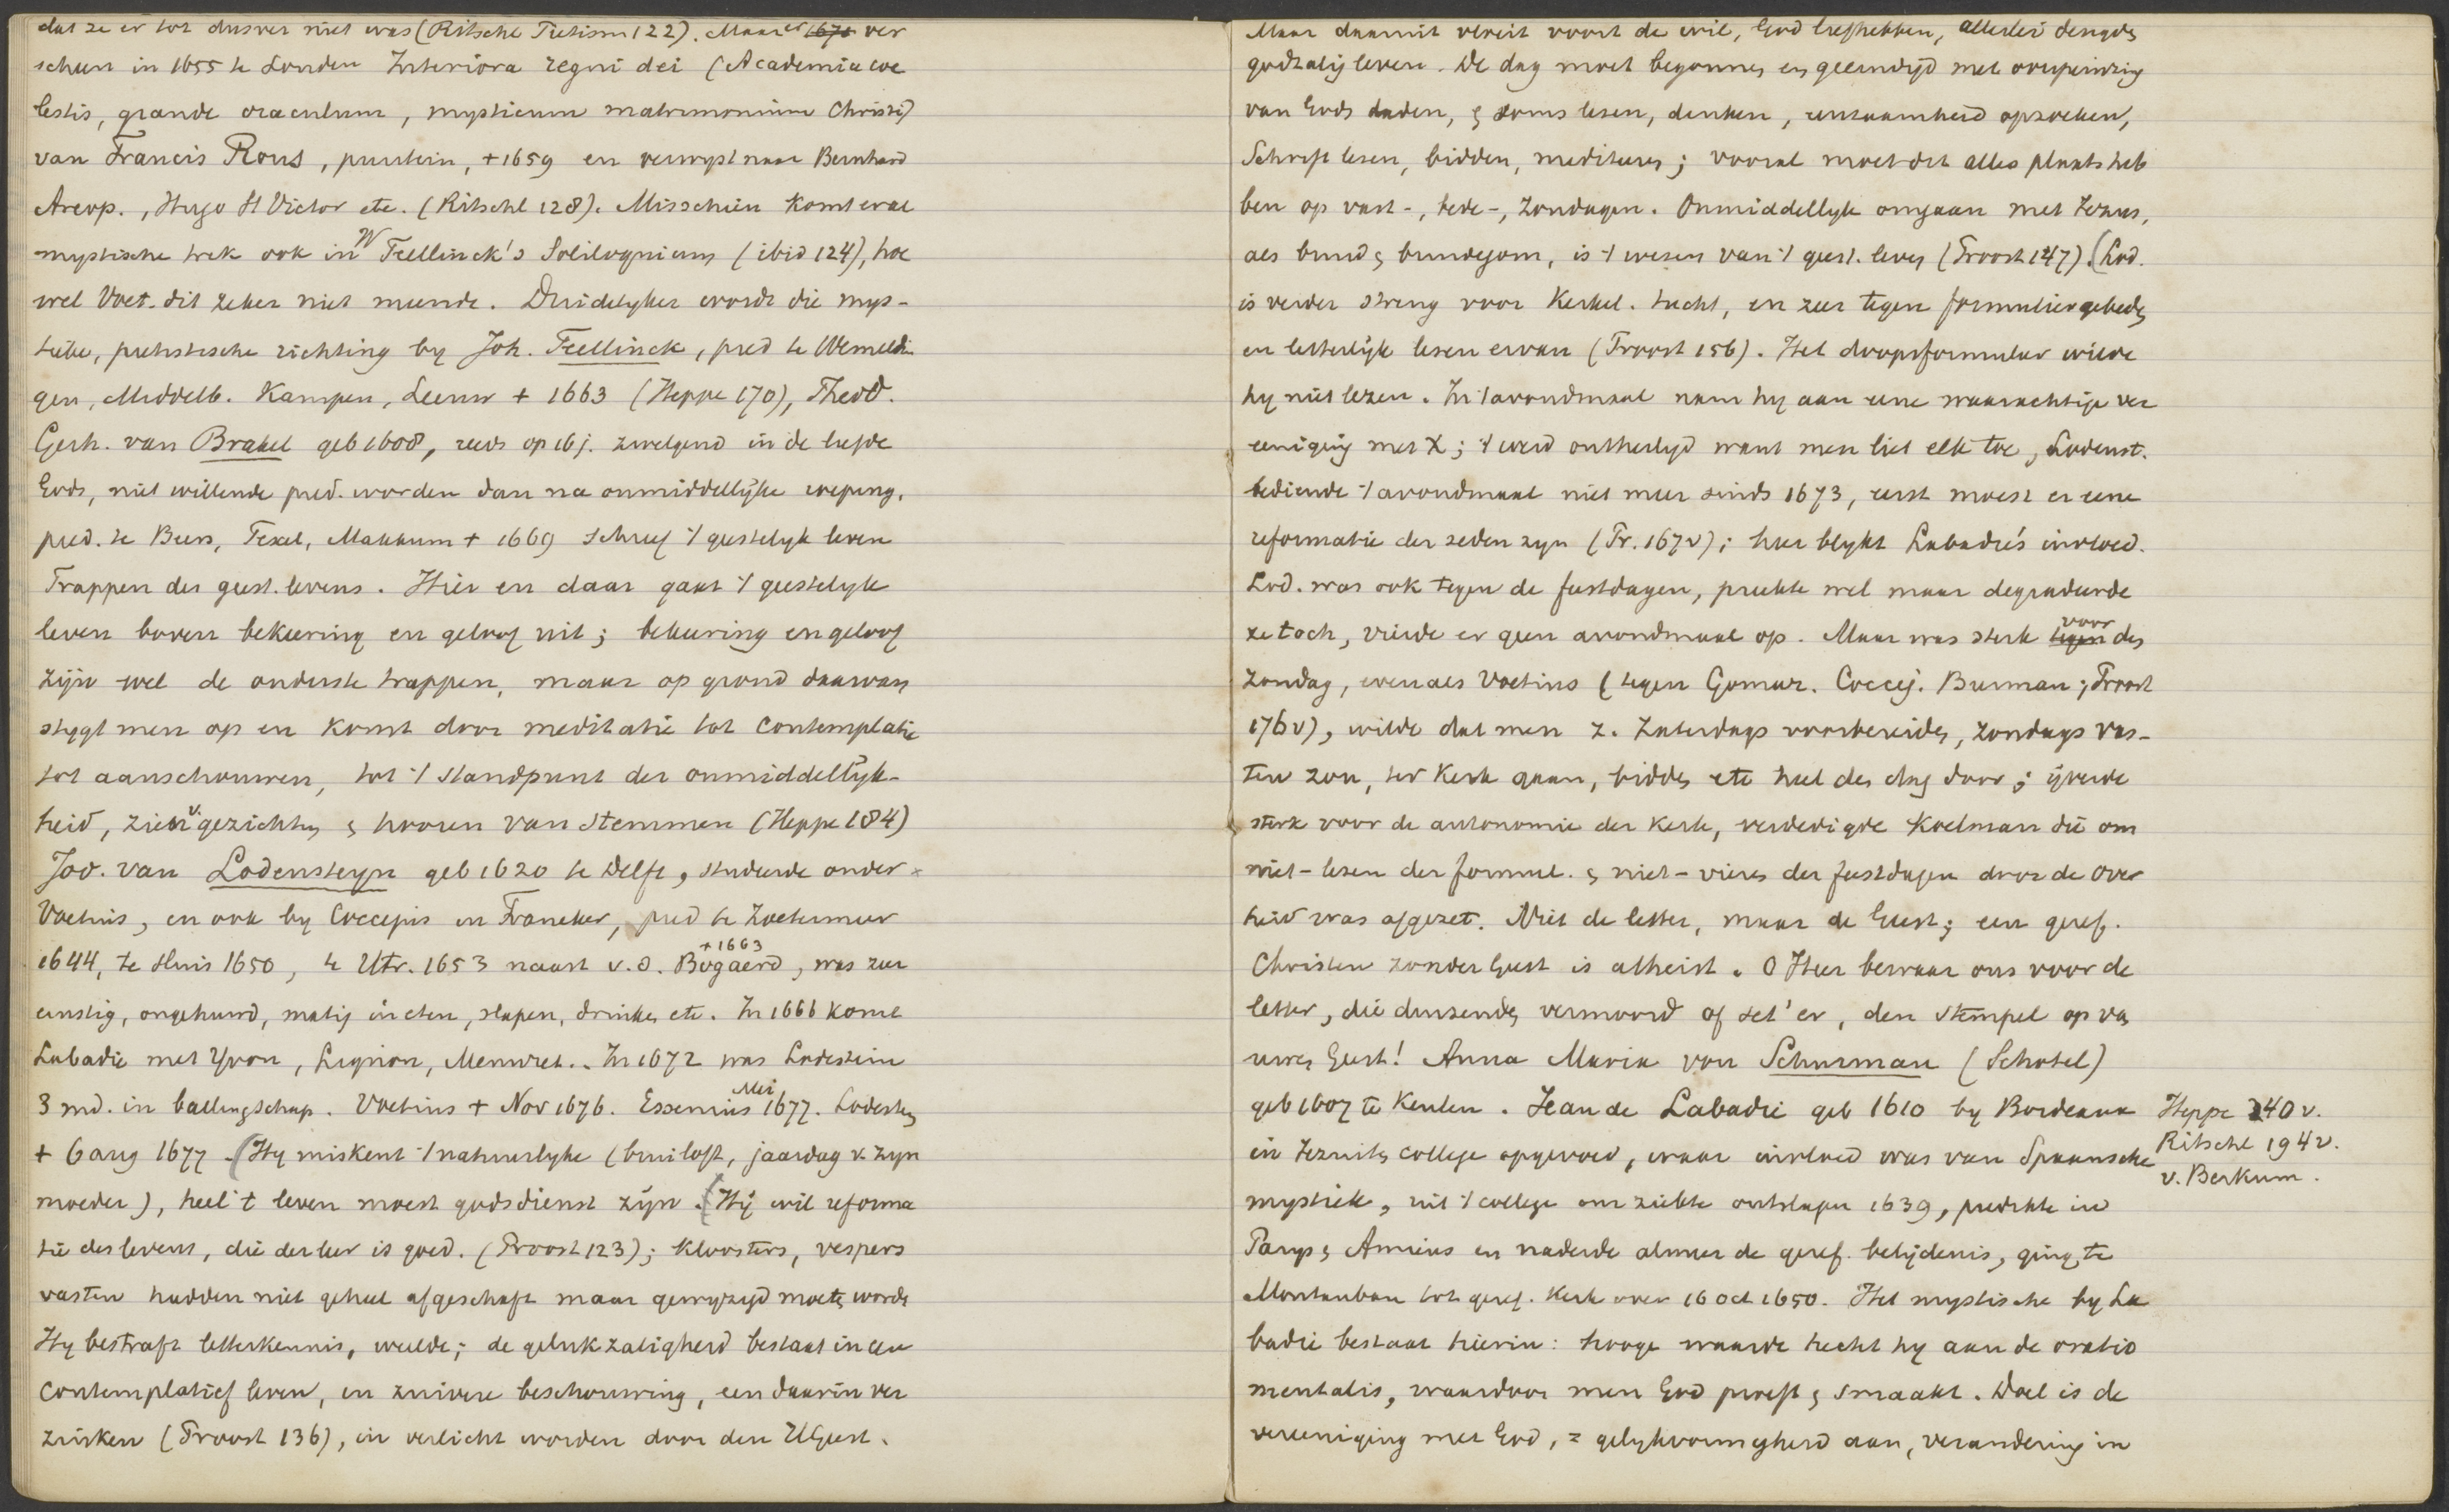 dat ze er tot dusver niet was (Ritschl Pietism 122). Maar er 1670 ver
scheen in 1655 te Londen Interiora regni dei (Academia coe
lestis, grande oraculum, mysticum matrimonium Christi)
van Francis Rous, puritein, +1659 en verwyst naar Bernhard
Areop., Hugo St Victor etc. (Ritschl 128). Misschien komt eene
mystische trek ook in W Teellinck's Soliloquium (ibid 124), hoe
wel Voet. dit zeker niet meende. Duidelyker wordt die mys-
tieke, pietistische richting by Joh. Teellinck, pred te Wemeldin
gen, Middelb. Kampen, Leeuw + 1663 (Heppe 170), Theod.
Gerh. van Brakel geb 1608, reeds op 16 j. zwelgend in de liefde
Gods, niet willende pred. worden dan na onmiddellijke roeping,
pred. te Beers, Texel, Makkum + 1669 schreef 't geestelyk leven
Trappen des geest. levens. Hier en daar gaat 't geestelyk
leven boven bekeering en geloof uit; bekeering en geloof
zijn wel de onderste trappen, maar op grond daarvan
stygt men op en komt door meditatie tot contemplatie
tot aanschouwen, tot 't standpunt der onmiddellijk-
heid, zien v. gezichten & hooren van stemmen (Heppe 184)
Jod. van Lodensteyn geb 1620 te Delft, studeerde onder
Voetius, en ook by Coccejus in Franeker, pred te Zoetermeer
1644, te Sluis 1650, te Utr. 1653 naast v.d. Bogaerd +1663, was zeer
ernstig, ongehuwd, matig in eten, slapen, drinken etc. In 1666 komt
Labadie met Yvon, Lignon, Menuret.. In 1672 was Lodestein
3 md. in ballingschap. Voetius + Nov 1676. Essenius Mei 1677. Lodesteyn
+ 6 aug 1677. (Hy miskent 't natuurlyke (bruiloft, jaardag v. zyn
moeder), heel 't leven moest godsdienst zijn. (Hij wil reforma
tie des levens, die der leer is goed. (Proost 123); kloosters, vespers
vasten hadden niet geheel afgeschaft maar gewyzigd moeten worden
Hy bestraft letterkennis, weelde; de gelukzaligheid bestaat in een
contemplatief leven, in zuivere beschouwing, een daarin ver
zinken (Proost 136), in verlicht worden door den H Geest.
Maar daaruit vloeit voort de wil, God liefhebben, allerlei deugden
godzalig leven. De dag moet begonnen en geeindigd met overpeinzing
van Gods daden, & soms lesen, denken, eenzaamheid opzoeken,
Schrift lesen, bidden, mediteeren; vooral moet dit alles plaats heb
ben op vast-, bede-, Zondagen. Onmiddellyk omgaan met Jezus,
als bruid & bruidegom, is 't wezen van 't geest. leven (Proost 147). (Lod.
is verder streng voor kerkel. tucht, en zeer tegen formuliergebeden
en letterlijk lesen ervan (Proost 156). Het doopsformulier wilde
hy niet lezen. In 't avondmaal nam hy aan eene waarachtige ver
eeniging met X; 't werd ontheiligd want men liet elk toe, Lodenst.
bediende 't avondmaal niet meer sinds 1673, eerst moest er eene
reformatie der zeden zyn (Pr. 167v); hier blykt Labadie's invloed.
Lod. was ook tegen de feestdagen, preekte wel maar degradeerde
ze toch, vierde er geen avondmaal op. Maar was sterk tegen voor den
Zondag, evenals Voetius (tegen Gomar. Coccej. Burman; Proost
176v), wilde dat men z. Zaterdags voorbereiden, Zondags vas-
ten zou, ter kerk gaan, bidden etc heel den dag door; ijverde
sterk voor de autonomie der kerk, verdedigde Koelman die om
niet-lesen der formul. & niet-vieren der feestdagen door de over
heid was afgezet. Niet de letter, maar de Geest; een geref.
Christen zonder Geest is atheist. O Heer bewaar ons voor de
letter, die duizenden vermoord of set' er, den stempel op van
uwen Geest! Anna Maria von Schurman (Schotel)
geb 1607 te Keulen. Jean de Labadie geb 1610 by Bordeaux
in Jezuiten college opgevoed, waar invloed was van Spaansche
mystiek, uit 't college om ziekte ontslagen 1639, predikte in
Parys & Amiens en naderde almeer de geref. belijdenis, ging te
Montauban tot geref. kerk over 16 Oct 1650. Het mystische by La
badie bestaat hierin: hooge waarde hecht hy aan de oratio
mentalis, waardoor men God proeft & smaakt. Doel is de
vereeniging met God, = gelykvormigheid aan, verandering in
Heppe 240 v.
Ritschl 194v.
v. Berkum.